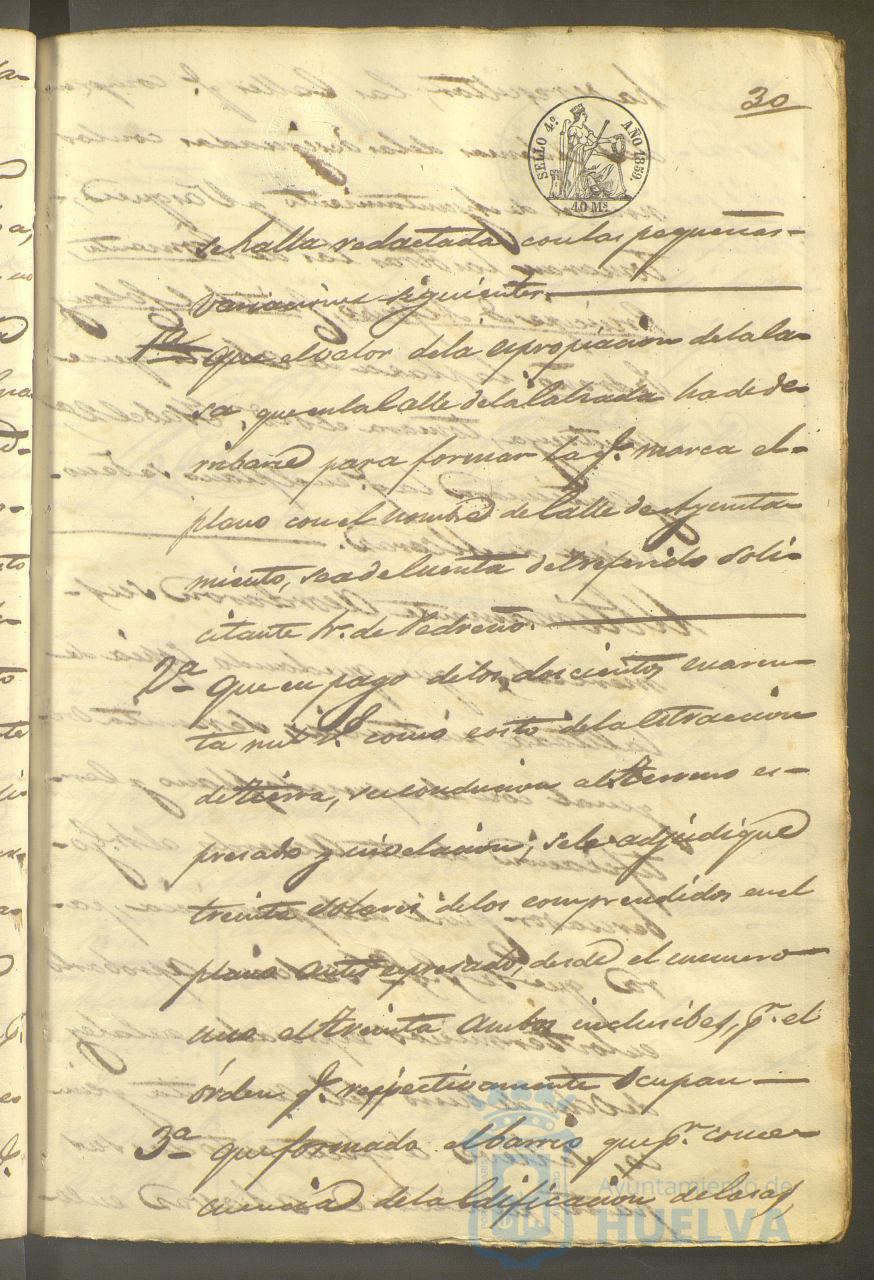 30
SELLO 4.º AÑO 1859.
40 Ms.
se halla redactada con las pequeñas
variaciones siguientes.
1ª que el valor de la espropiacion de la Ca-
sa, que en la Calle de la Calzada ha de de-
rribarse para formar la q.e marca el
plano con el nombre de Calle de Ayunta-
miento, sea de cuenta del referido Soli-
citante Sr. de Pedreño.
2ª Que en pago de los doscientos cuaren-
ta mil rs como costo de la estraccion
de tierra, su conducion al terreno es-
presado y nivelacion, se le adjudique
treinta solares de los comprendidos en el
plano antes espresado, desde el numero
uno al treinta ambos inclusibes, pr. el
órden q.e respectivamente ocupan
3ª que formado el barrio que pr. conse-
cuencia de la Edificacion de Casas,
Ayuntamiento de
HUELVA